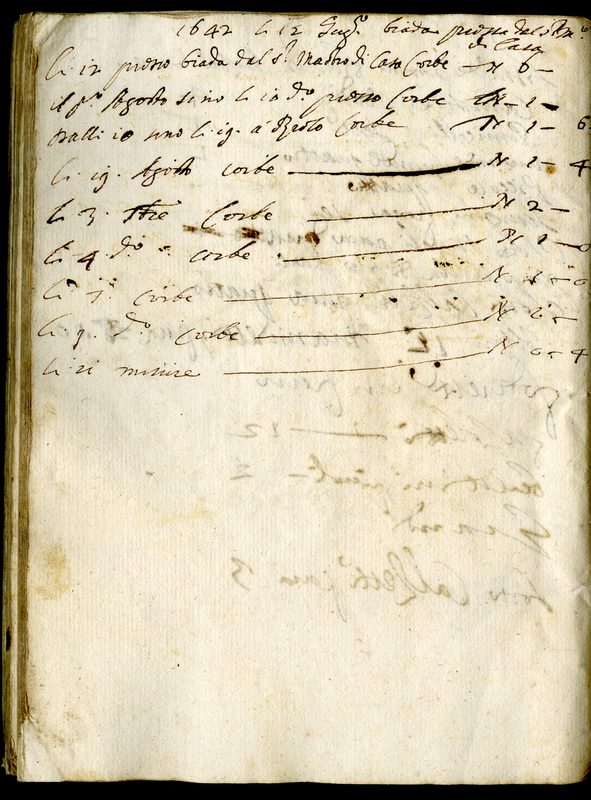 1642 li 12 Giug.º biada presso dal s.r M.º
di Casa
li. 12 presso biada dal s.r Mastro di Casa Corbe — N 6 —
il p.º Agosto sino li 10 d.º presso Corbe N — 1 —
dalli 10 sino li. 19. Corbe N 1 — 6
li. 19. Agosto corbe N 1 — 4
li. 3. 7bre Corbe N 2 —
li. 4 d.º corbe N 1 — 0
li corbe N
li. 9. d.º corbe N
li. 21 misure N 0 — 4